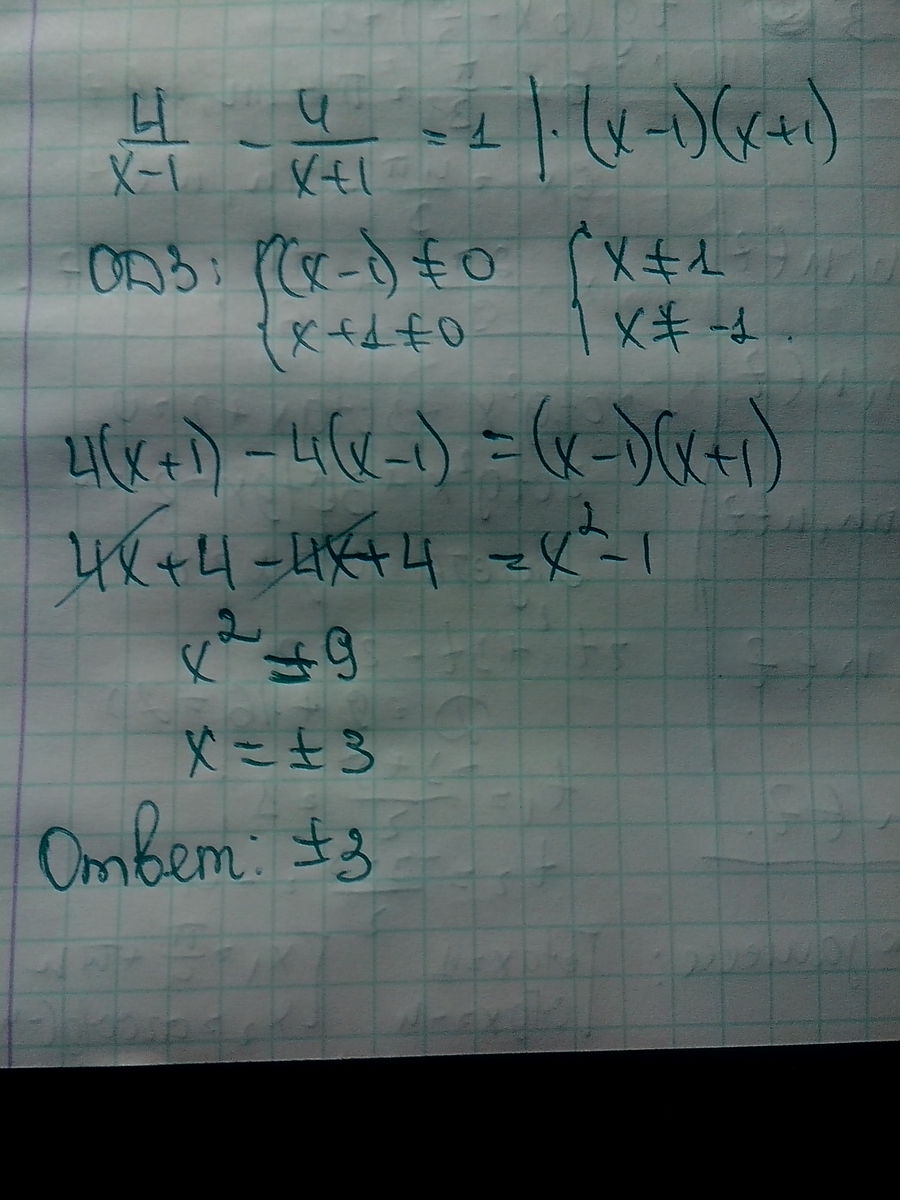 4/(x-1) - 4/(x+1) = 1 | · (x-1)(x+1)
ОДЗ: { (x-1) ≠ 0 { x ≠ 1
x+1 ≠ 0 x ≠ -1.
4(x+1) - 4(x-1) = (x-1)(x+1)
4x + 4 - 4x + 4 = x² - 1
x² = 9
x = ± 3
Ответ: ±3